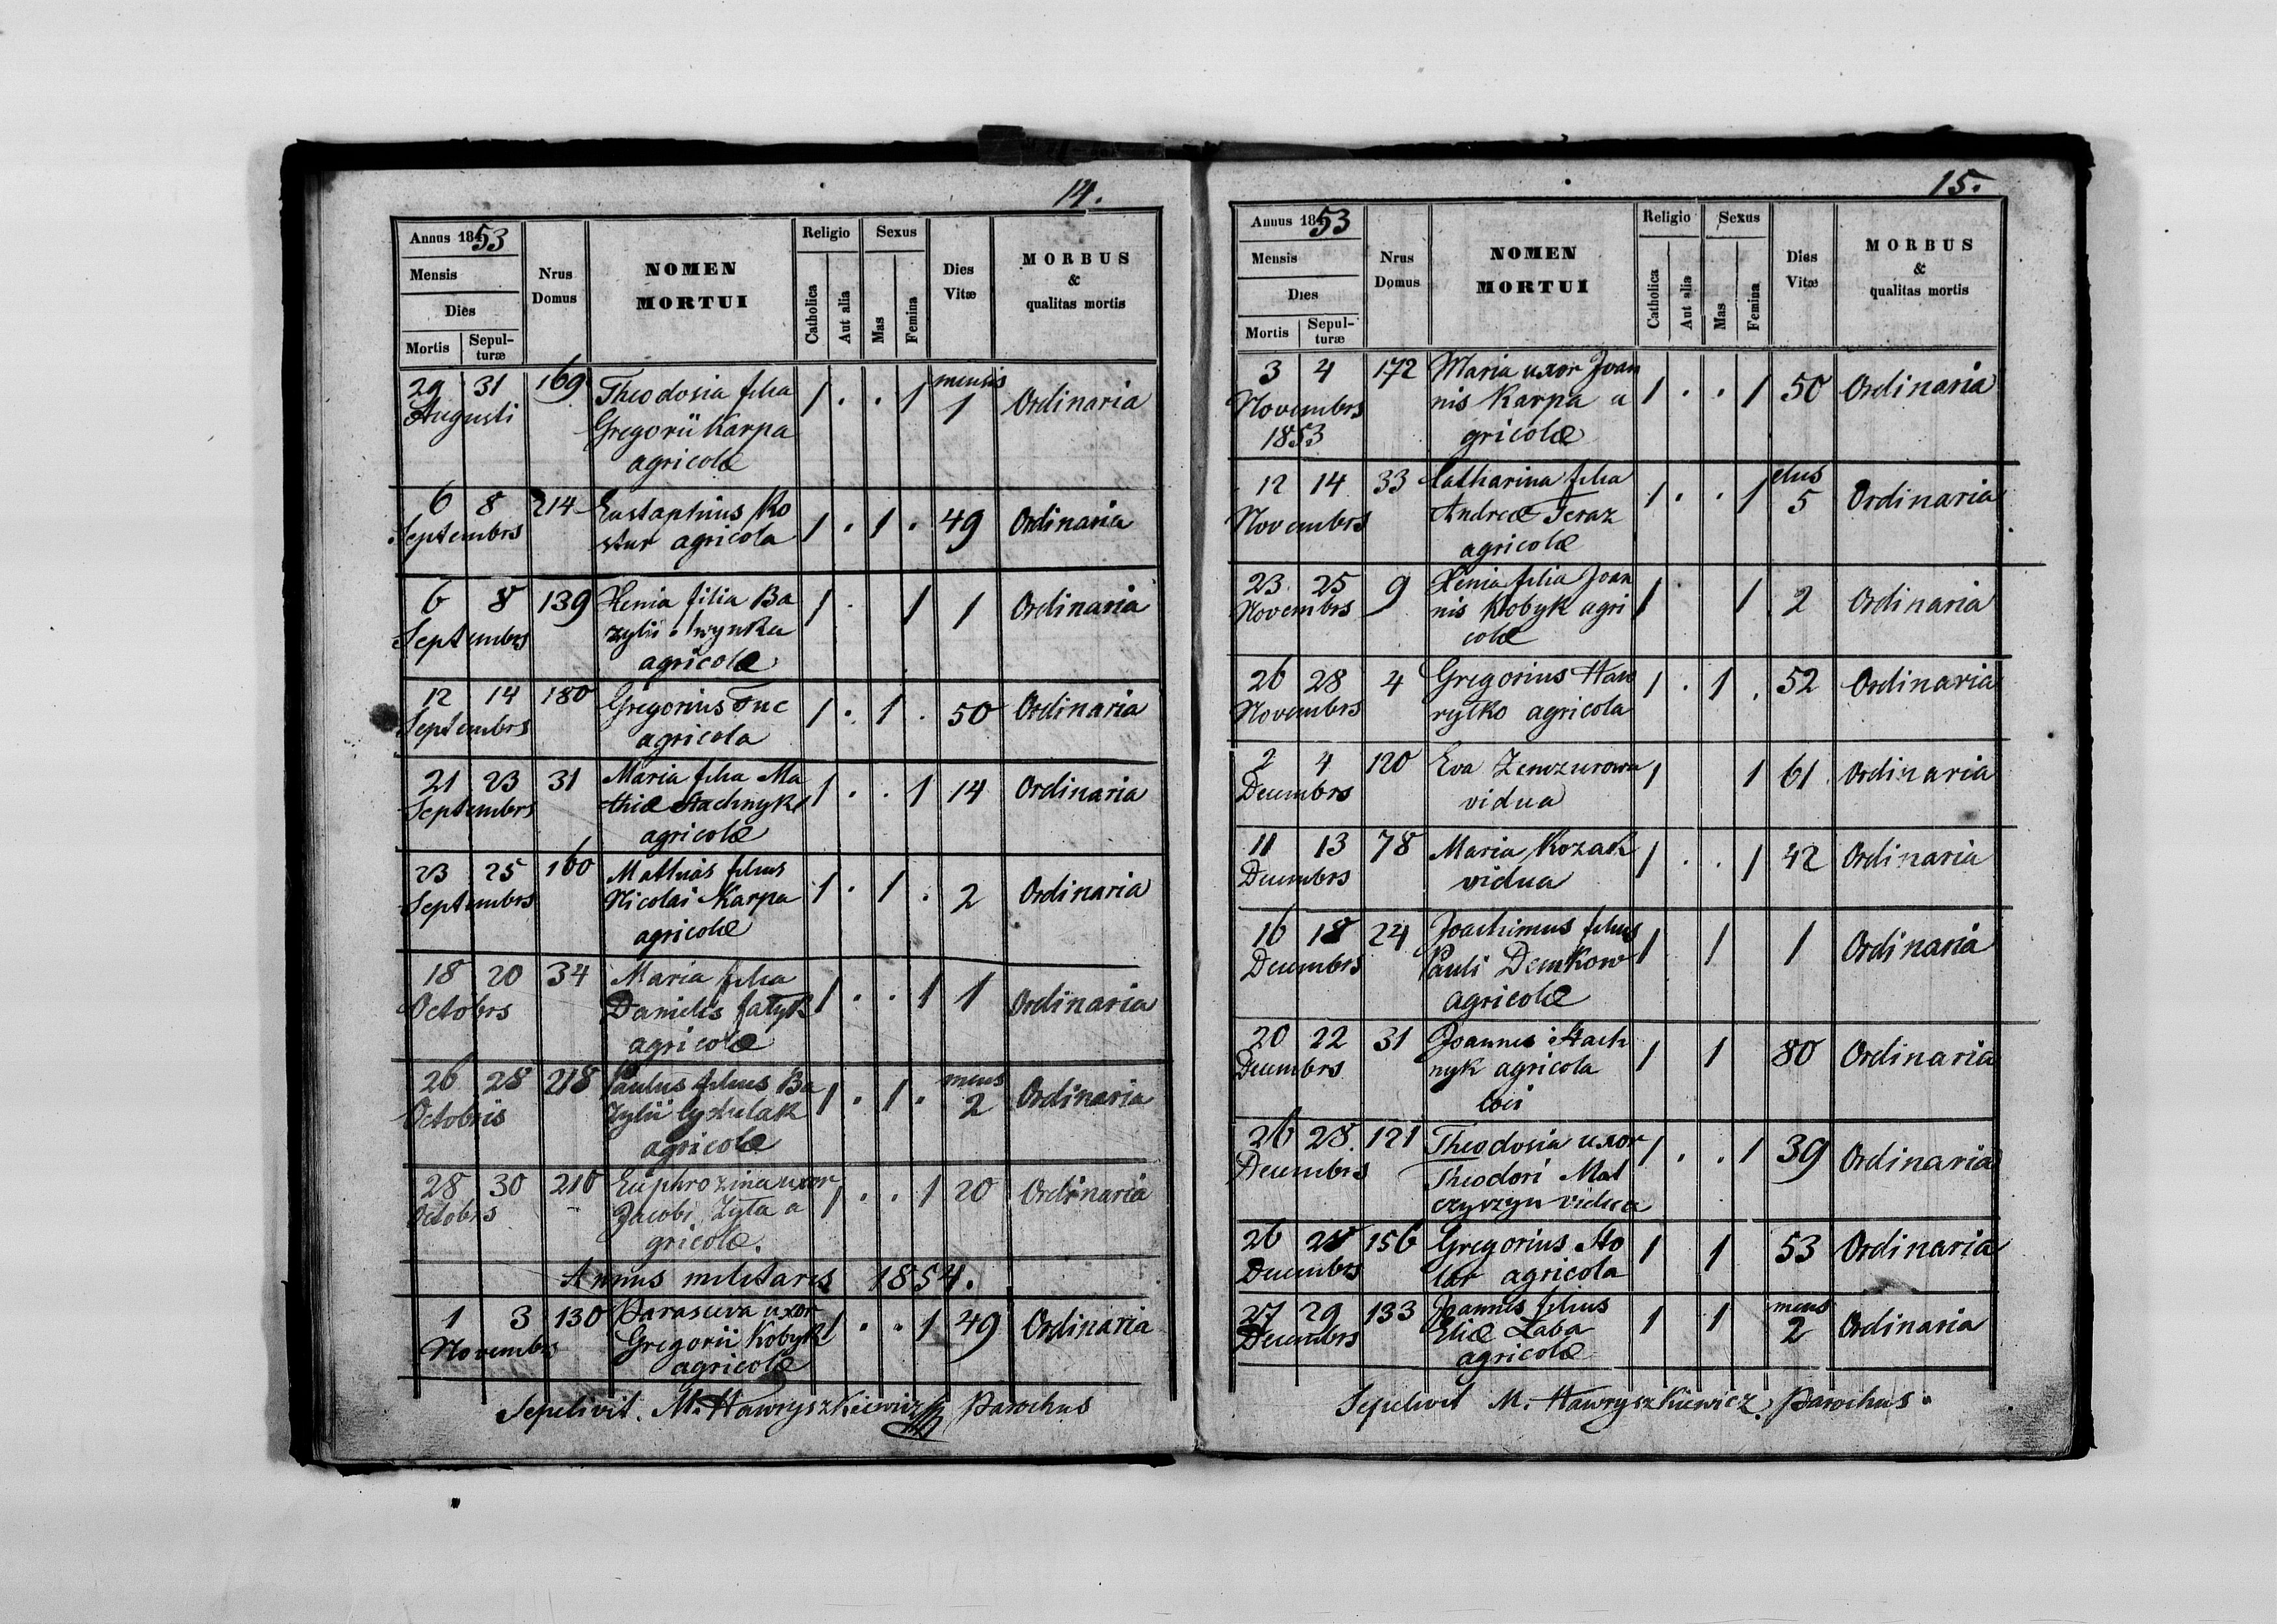 14.
Annus 1853 Nrus Domus NOMEN MORTUI Religio Sexus Dies Vitæ MORBUS & qualitas mortis
Mensis
Dies
Mortis Sepul-turæ Catholica Aut alia Mas Femina
29 31 169 Theodosia filia 1 . . 1 mensis 1 Ordinaria
Augusti Gregorii Karpa
agricolæ
6 8 214 Eustaphius Ko 1 . 1 . 49 Ordinaria
Septembrs stur agricola
6 8 139 Xenia filia Ba 1 . 1 1 Ordinaria
Septembrs zylii
agricolæ
12 14 180 Gregorius Tuc 1 . 1 . 50 Ordinaria
Septembrs agricola
21 23 31 Maria filia Ma 1 . . 1 14 Ordinaria
Septembrs thiæ Stachnyk
agricolæ
23 25 160 Mathias filius 1 . 1 . 2 Ordinaria
Septembrs Nicolai Karpa
agricolæ
18 20 34 Maria filia 1 . . 1 1 Ordinaria
Octobrs Danielis fatyk
agricolæ
26 28 218 Paulus filius Ba 1 . 1 . mens 2 Ordinaria
Octobris zylii
agricolæ
28 30 210 Euphrozina uxor 1 . . 1 20 Ordinaria
Octobrs Jacobi Zyta a
gricolæ.
Annus militaris 1854.
1 3 130 Parasceva uxor 1 . . 1 49 Ordinaria
Novembrs Gregorii Kobyk
agricolæ
Sepelivit M. Hawryszkiewicz Parochus
15.
Annus 1853 Nrus Domus NOMEN MORTUI Religio Sexus Dies Vitæ MORBUS & qualitas mortis
Mensis
Dies
Mortis Sepul-turæ Catholica Aut alia Mas Femina
3 4 172 Maria uxor Joan 1 . . 1 50 Ordinaria
Novembrs nis Karpa a
1853 gricolæ
12 14 33 Catharina filia 1 . . 1 5 Ordinaria
Novembrs Andreæ Feraz
agricolæ
23 25 9 Xenia filia Joan 1 . 1 2 Ordinaria
Novembrs nis Kobyk agri
colæ
26 28 4 Gregorius Haw 1 . 1 . 52 Ordinaria
Novembrs rylko agricola
2 4 120 Eva 1 1 61 Ordinaria
Decembrs vidua
11 13 78 Maria Kozak 1 . . 1 42 Ordinaria
Decembrs vidua
16 18 24 Joachimus filius 1 1 1 Ordinaria
Decembrs Pauli Demkow
agricolæ
20 22 31 Joannes Stach 1 1 80 Ordinaria
Decembrs nyk agricola
loci
26 28 121 Theodosia uxor 1 . . 1 39 Ordinaria
Decembrs Theodori Mat
vidua
26 28 156 Gregorius Sto 1 1 53 Ordinaria
Decembrs lar agricola
27 29 133 Joannes filius 1 1 mens 2 Ordinaria
Decembrs Eliæ Laba
agricolæ
Sepelivit M. Hawryszkiewicz Parochus.